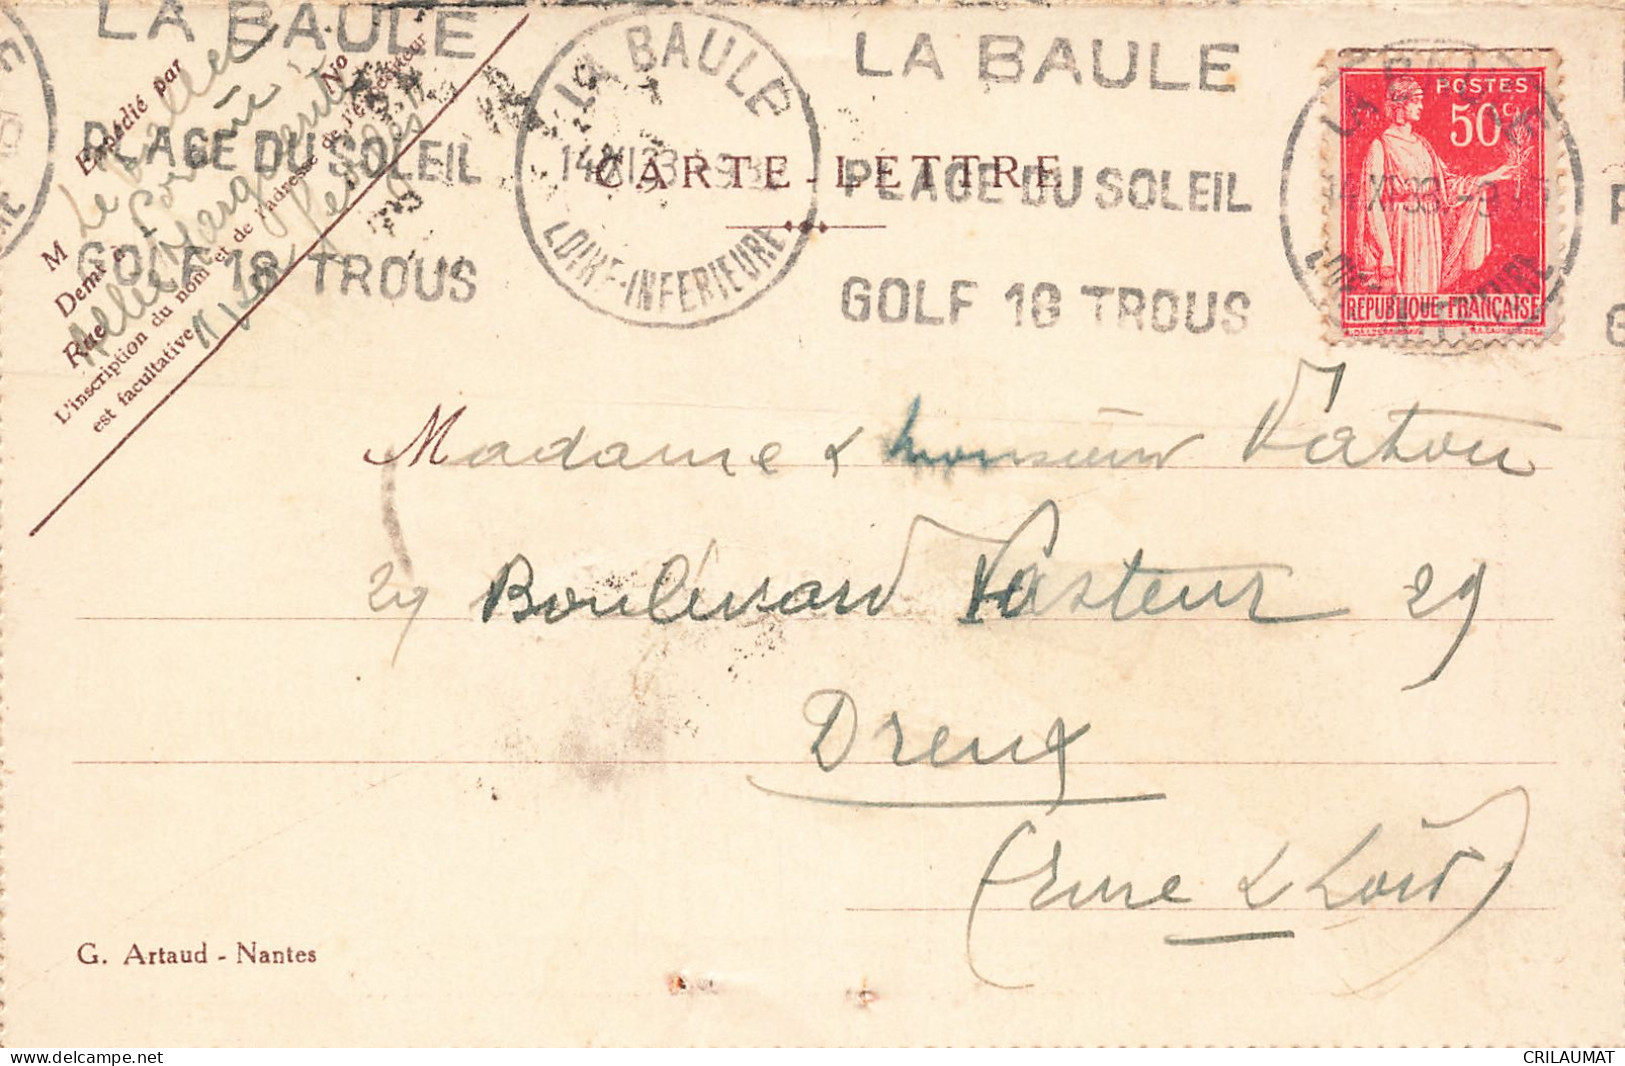 LA BAULE
PLAGE DU SOLEIL
GOLF 18 TROUS
LA BAULE
14 XI 33
LOIRE-INFERIEURE
LA BAULE
PLAGE DU SOLEIL
GOLF 18 TROUS
CARTE-LETTRE
POSTES
50c
REPUBLIQUE-FRANÇAISE
Expédié par
M
Demt à
Rue No
L'inscription du nom et de l'adresse de l'expéditeur
est facultative
Madame & monsieur
29 Boulevard Pasteur 29
Dreux
(Eure & Loir)
G. Artaud - Nantes
www.delcampe.net
CRILAUMAT